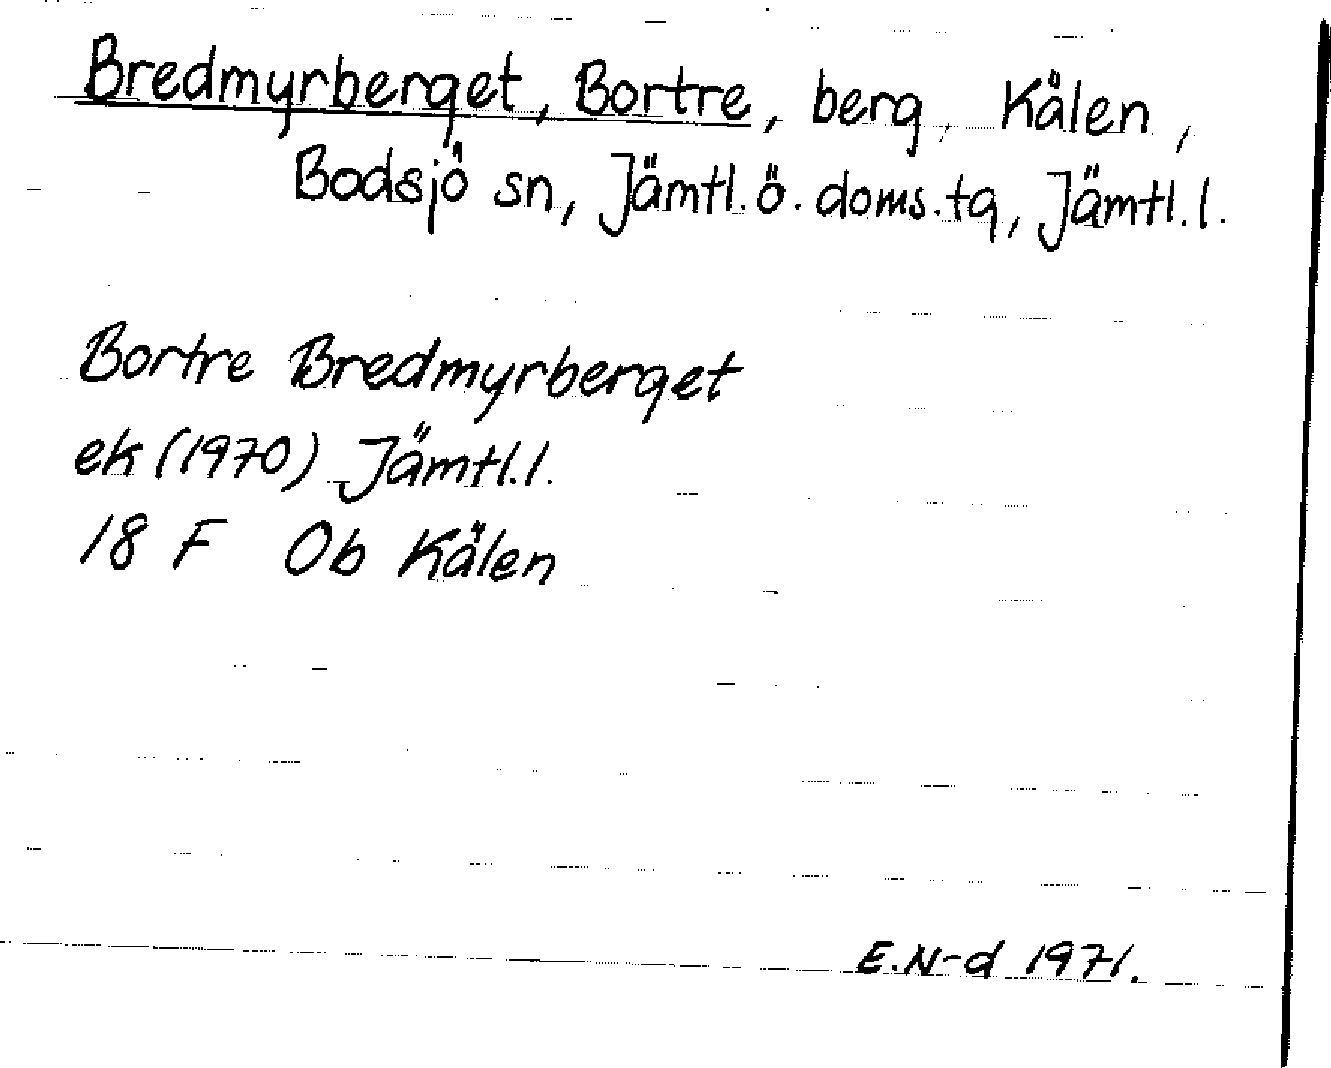 Bredmyrberget, Bortre, berg, Kälen,
Bodsjö sn, Jämtl.ö.doms.tg, Jämtl.l.
Bortre Bredmyrberget
ek (1970) Jämtl.l.
18 F Ob Kälen
E.N-d 1971.